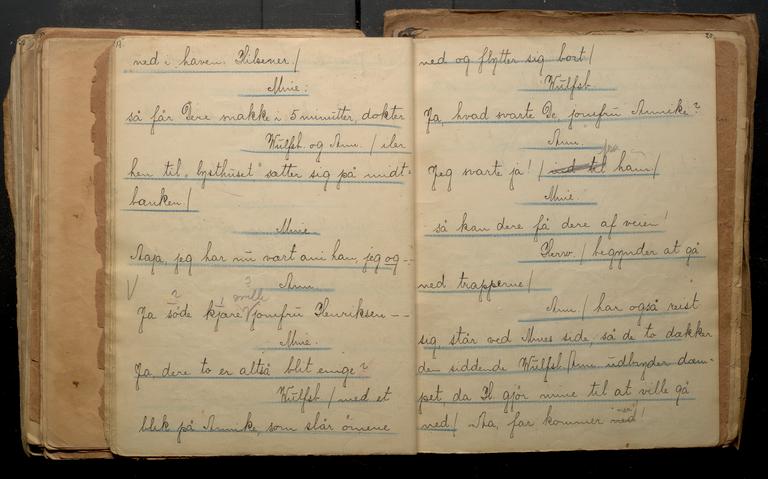 19.
ned i haven. Pilsener./
Mine:
så får Dere snakke i 5 minutter, dokter
Wulfsb. og Ann. / iler
hen til "lysthuset" sætter sig på midt=
banken/
Mine
Aaja, jeg har nu vært ani han, jeg og --
Ann.
2 1 3
Ja söde kjære snille jomfru Henriksen --
Mine.
Ja, dere to er altså blit enige?
Wulfsb / med et
blik på Annike, som slår öinene
20.
ned og flytter sig bort/
Wulfsb
Ja, hvad svarte De jomfru Annike?
Ann.
fra
Jeg svarte ja! / ind til ham/
Mine.
så kan dere få dere af veien!
Herw. / begynder at gå
ned trapperne/
Ann / har også reist
sig, står ved Mines side, så de to dækker
den siddende Wulfsb. Ann. udbryder dæm=
pet, da H. gjör mine til at ville gå
ned/ Aa, far kommer ned!